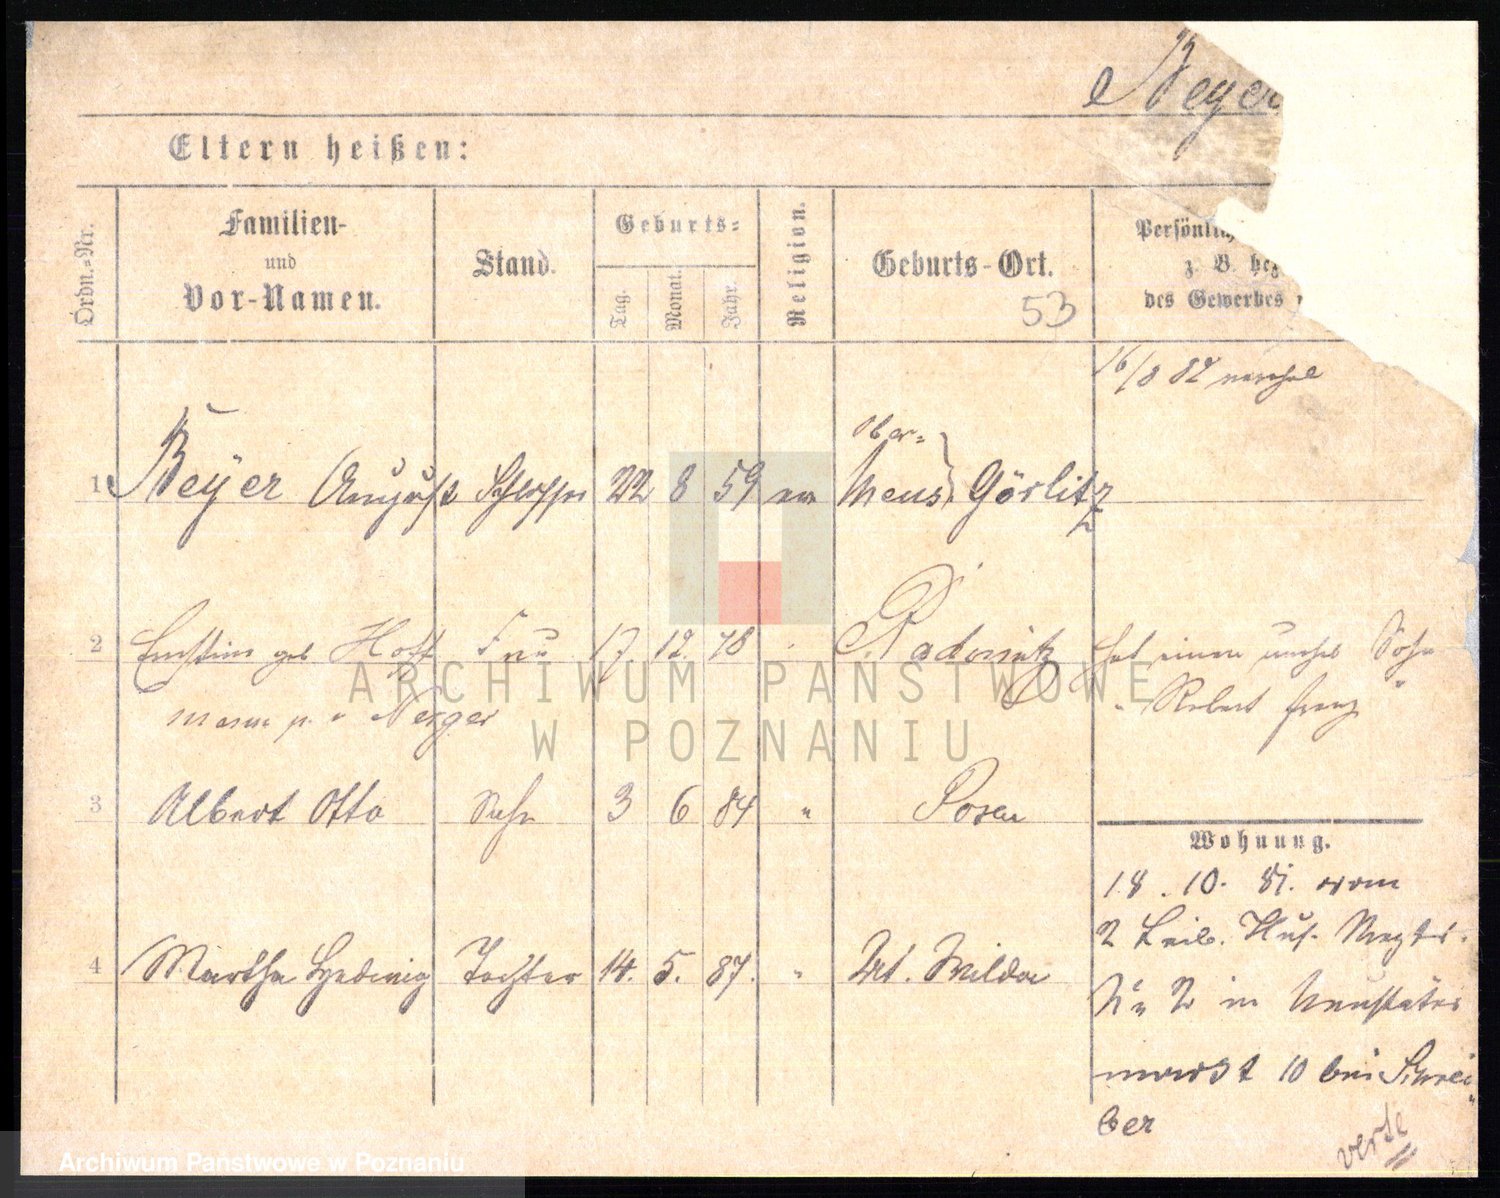 Beyer
Eltern heißen:
Ordn.-Nr.
Familien-
und
Vor-Namen.
Stand.
Geburts-
Tag.
Monat.
Jahr.
Religion.
Geburts-Ort.
53
Persönlich
z. B. bez
des Gewerbes
16/8 82
1 Beyer August Schlosser 22 8 59 ev Ober- Neus Görlitz
2 geb Hoff Frau 17 12 Radomitz hat einen unehel Sohn
mann Nerger Robert Franz
3 Albert Otto Sohn 3 6 84 " Posen
Wohnung.
18. 10. 81. vom
2 Leib. Hus. Regts.
4 Martha Hedwig Tochter 14. 5. 87. " St. Wilda
No 2 in Neustädter
markt 10 bei Schrei
ber
verte
ARCHIWUM PAŃSTWOWE
W POZNANIU
Archiwum Państwowe w Poznaniu